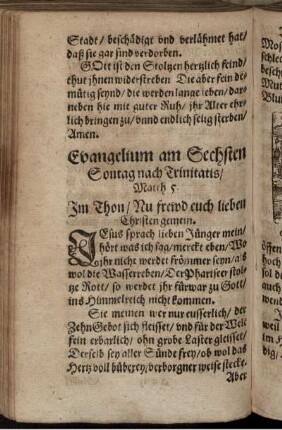 Stadt/ beschädigt vnd verlähmet hat/
daß sie gar sind verdorben.
GOtt ist den Stoltzen hertzlich feind/
thut jhnen widerstreben Die aber fein de-
mütig seynd/ die werden lange leben/ dar-
neben hie mit guter Ruh/ jhr Alter ehr-
lich bringen zu/ vnnd endlich selig sterben/
Amen.
Evangelium am Sechsten
Sontag nach Trinitatis/
Matth 5.
Im Thon/ Nu frewd euch lieben
Christen gemein.
JEsus sprach lieben Jünger mein/
hört was ich sag/ merckt eben/ Wo
jhr nicht werdet frömmer seyn/ als
wol die Wasserreben/ Der Phariseer stol-
tze Rott/ so werdet jhr fürwar zu Gott/
ins Himmelreich nicht kommen.
Sie meinen wer nur eusserlich/ der
Zehn Gebot sich fleisset/ vnd für der Welt
fein erbarlich/ ohn grobe Laster gleisset/
Derselb sey aller Sünde frey/ ob wol das
Hertz voll büberey/ verborgner weise stecke.
Aber